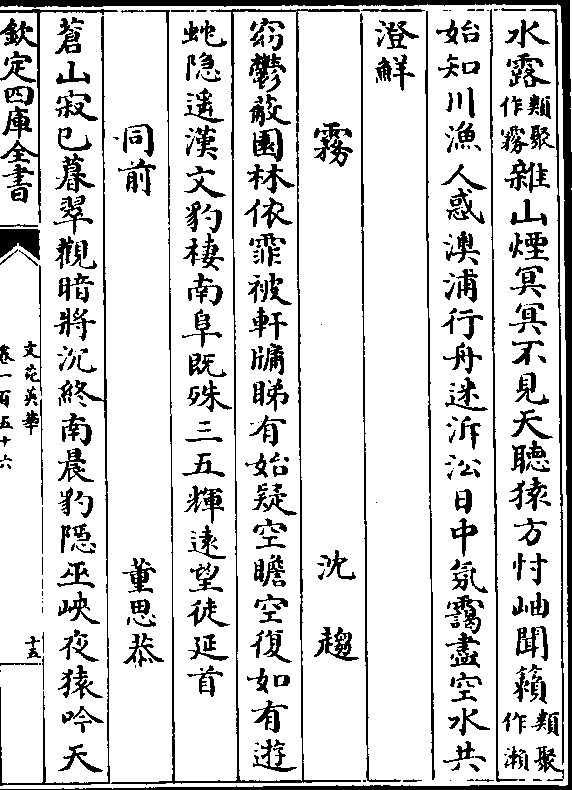 水露類聚作霧雜山煙冥冥不見天聽猿方忖岫聞籟類聚作瀨
始知川漁人惑澳浦行舟迷泝沿日中氛靄盡空水共
澄鮮
霧 沈趨
窈鬱蔽園林依霏被軒牖睇有始疑空瞻空復如有遊
蛇隠遙漢文豹棲南阜既殊三五輝遠望徒延首
同前 董思恭
蒼山寂已暮翠觀暗將沉終南晨豹隠巫峽夜猿吟天
欽定四庫全書
文苑英華
卷一百五十六
十五